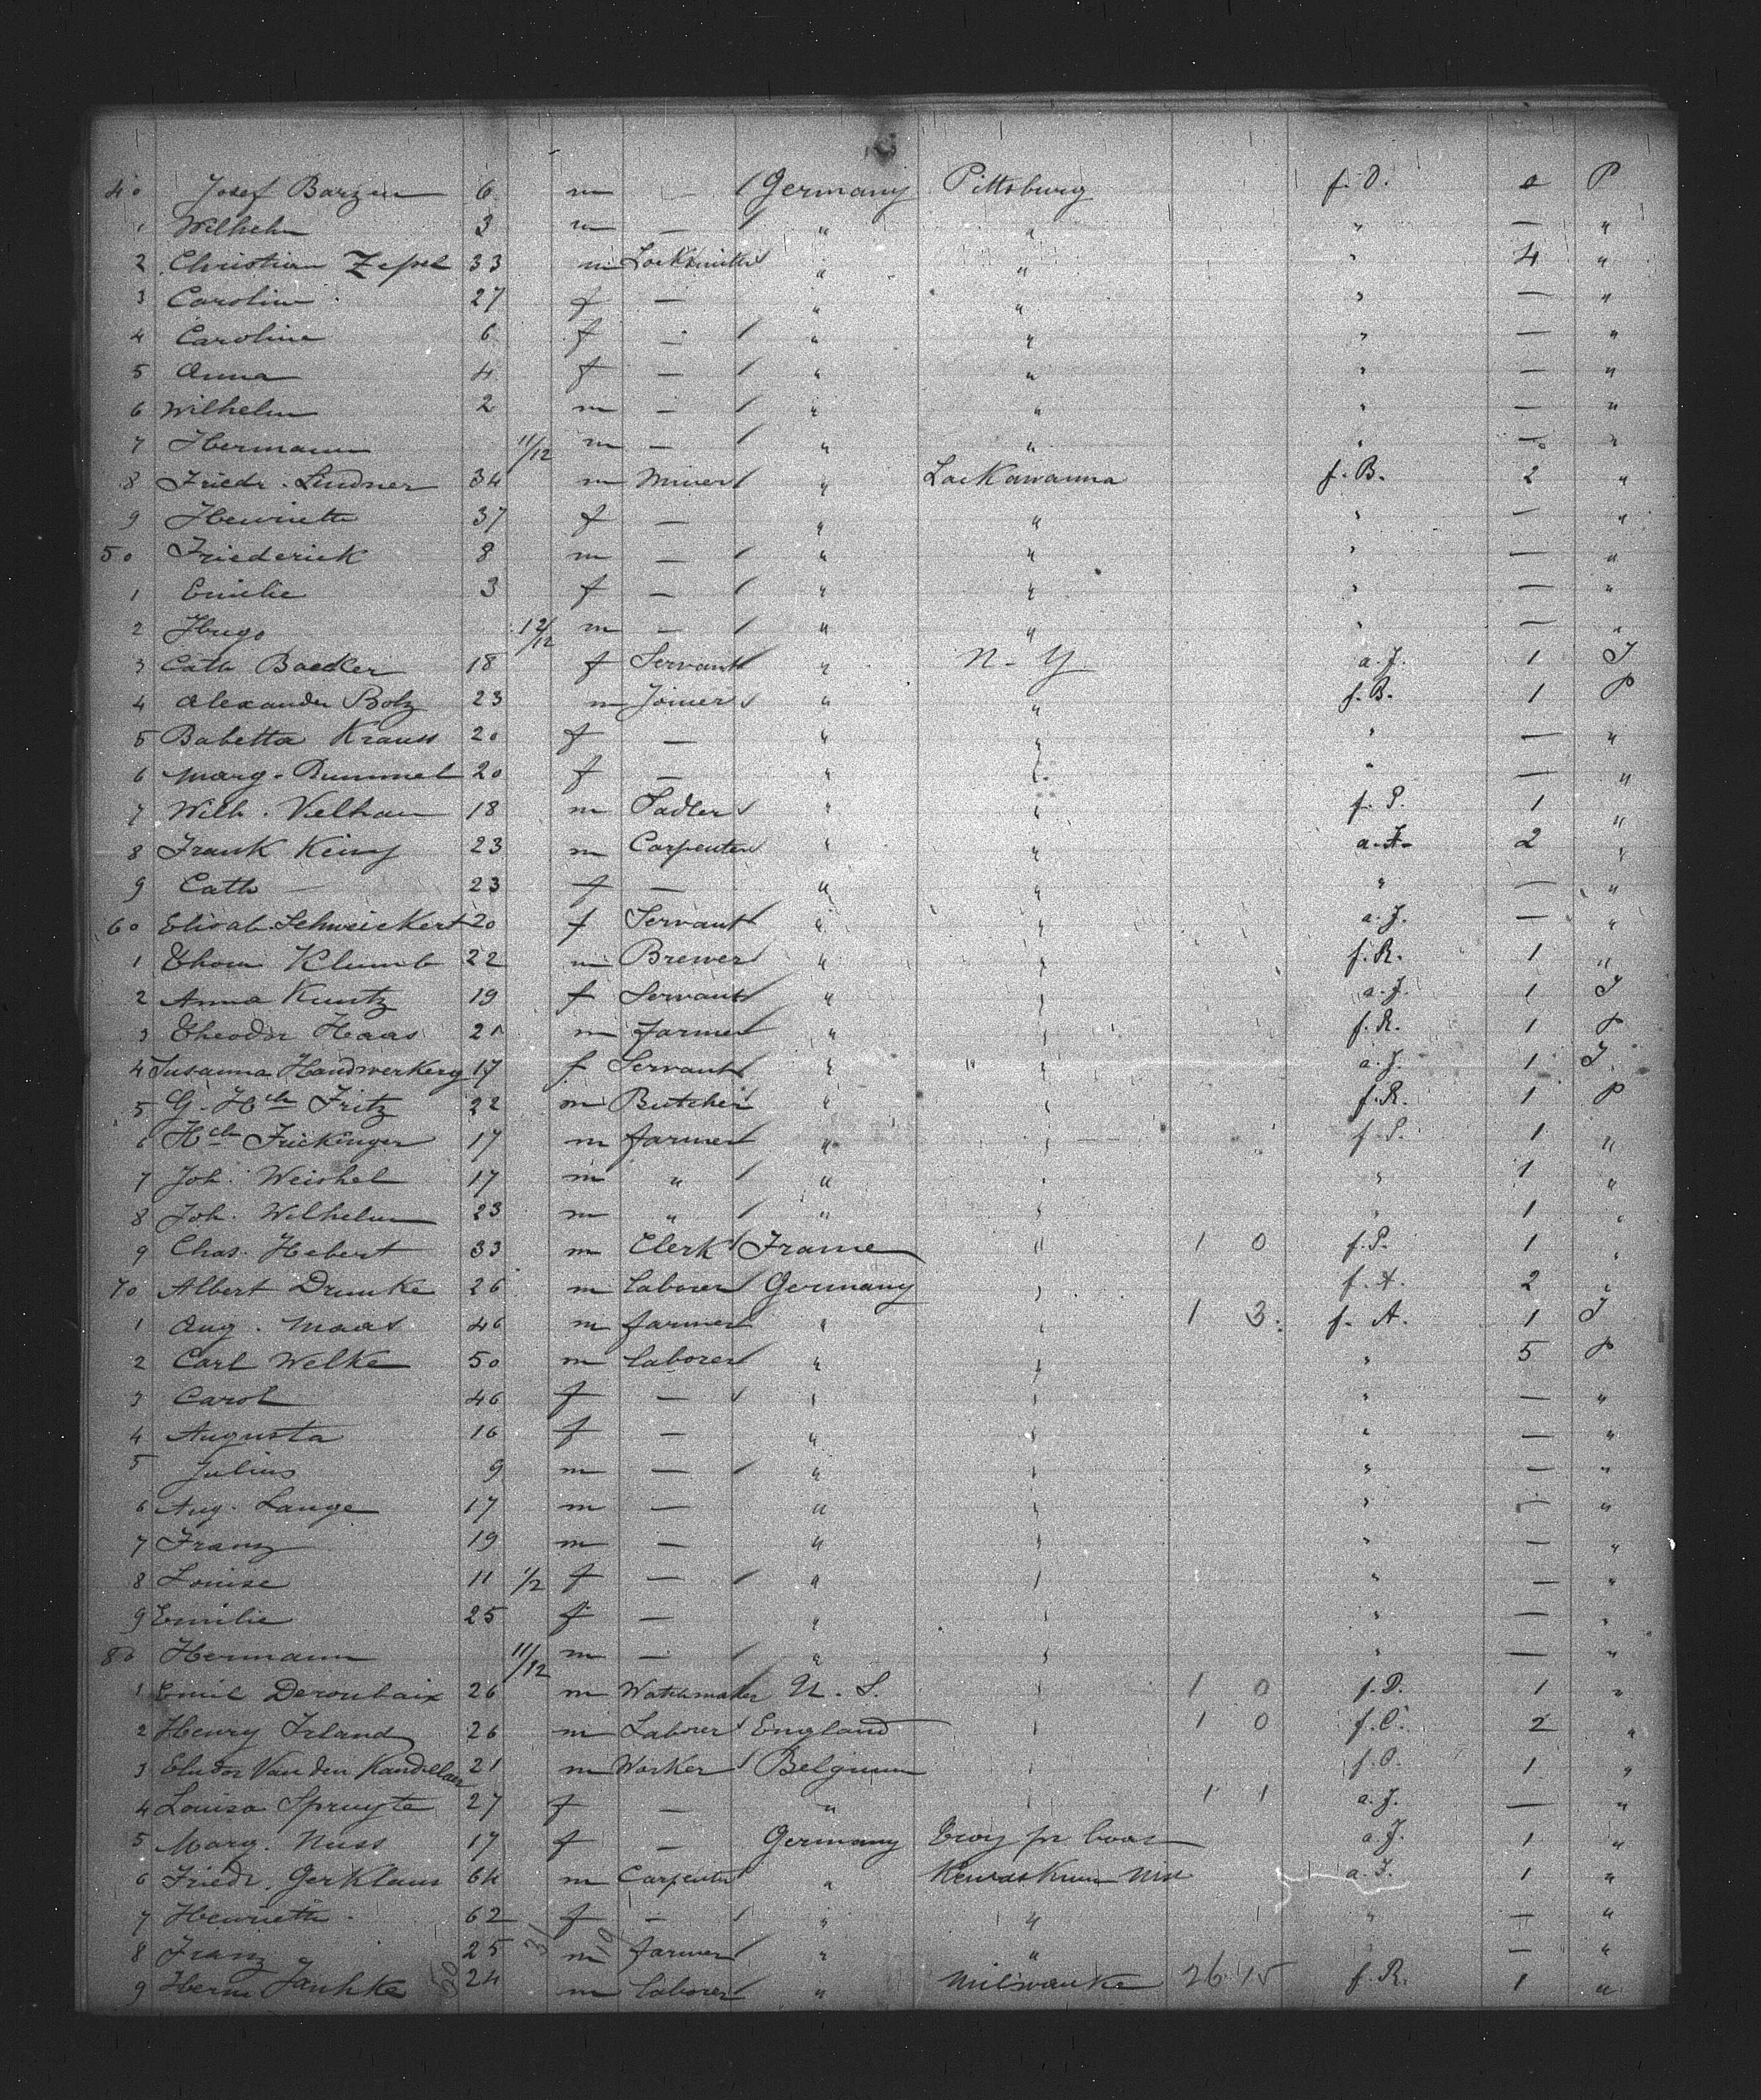 40 Josef Barzen 6 m — / Germany Pittsburg f. D. P
1 Wilhelm 3 m — / " " " — "
2 Christian Zepel 33 m Locksmith / " " " 4 "
3 Caroline 27 f — " " " — "
4 Caroline 6 f — / " " " — "
5 Anna 4 f — / " " " — "
6 Wilhelm 2 m — / " " " — "
7 Hermann 11/12 m — / " " " — "
8 Friedr. Lindner 34 m Miner / " Lackawanna f. B. 2 "
9 Henriette 37 f — " " " — "
50 Friederick 8 m — / " " " — "
1 Emilie 3 f — / " " " — "
2 Hugo 12/12 m — / " " " — "
3 Cath Baecker 18 f Servant / " N-Y a. J. 1 J
4 Alexander Bolz 23 m Joiner / " " f. B. 1 P
5 Babetta Krauss 20 f — " " " — "
6 Marg. Bummel 20 f — " " " — "
7 Wilh. 18 m Sadler / " " f. P. 1 "
8 Frank 23 m Carpenter / " " 2 "
9 Cath — 23 f — " " " — "
60 Elisab. Schweickert 20 f Servant / " " a. J. — "
1 Thom Klumb 22 m Brewer / " " f. R. 1 "
2 Anna Kuntz 19 f Servant / " " a. J. 1 J
3 Theodor Haas 21 m farmer / " " f. R. 1 P
4 Susanna Handwerkerg 17 f Servant / " " a. J. 1 J
5 G. Hch Fritz 22 m Butcher " " f. R. 1 P
6 Hch Frickinger 17 m farmer / " " f. P. 1 "
7 Joh. Weishel 17 m " / " " " 1 "
8 Joh. Wilhelm 23 m " / " " " 1 "
9 Chas. Hebert 33 m Clerk / France " 1 0 f. P. 1 "
70 Albert Drunke 26 m Laborer / Germany " f. A. 2 "
1 Aug. Maas 46 m farmer / " " 1 3 f. A. 1 J
2 Carl Welke 50 m Laborer / " " " 5 P
3 Carol 46 f — / " " " — "
4 Augusta 16 f — " " " — "
5 Julius 9 m — / " " " — "
6 Aug. Lange 17 m — " " " — "
7 Franz 19 m — " " " — "
8 Louise 11 1/2 f — / " " " — "
9 Emilie 25 f — " " " — "
80 Hermann 11/12 m — / " " " — "
1 Emil Deroubaix 26 m Watchmaker U. S. " 1 0 f. D. 1 "
2 Henry Irland 26 m Laborer / England " 1 0 f. C. 2 "
3 Van den Kandelaer 21 m Worker / Belgium " f. O. 1 "
4 Louisa Spruyte 27 f — " " 1 1 a. J. — "
5 Marg. Nuss 17 f — Germany Troy a. J. 1 "
6 Friedr. Gerklaus 64 m Carpenter / " Kewaskum Wis 1 "
7 Henriette 62 f — / " " " — "
8 Franz 25 m farmer / " " — "
9 Herm Jankke 24 m Laborer / " Milwauke 26 15 f. R. 1 "